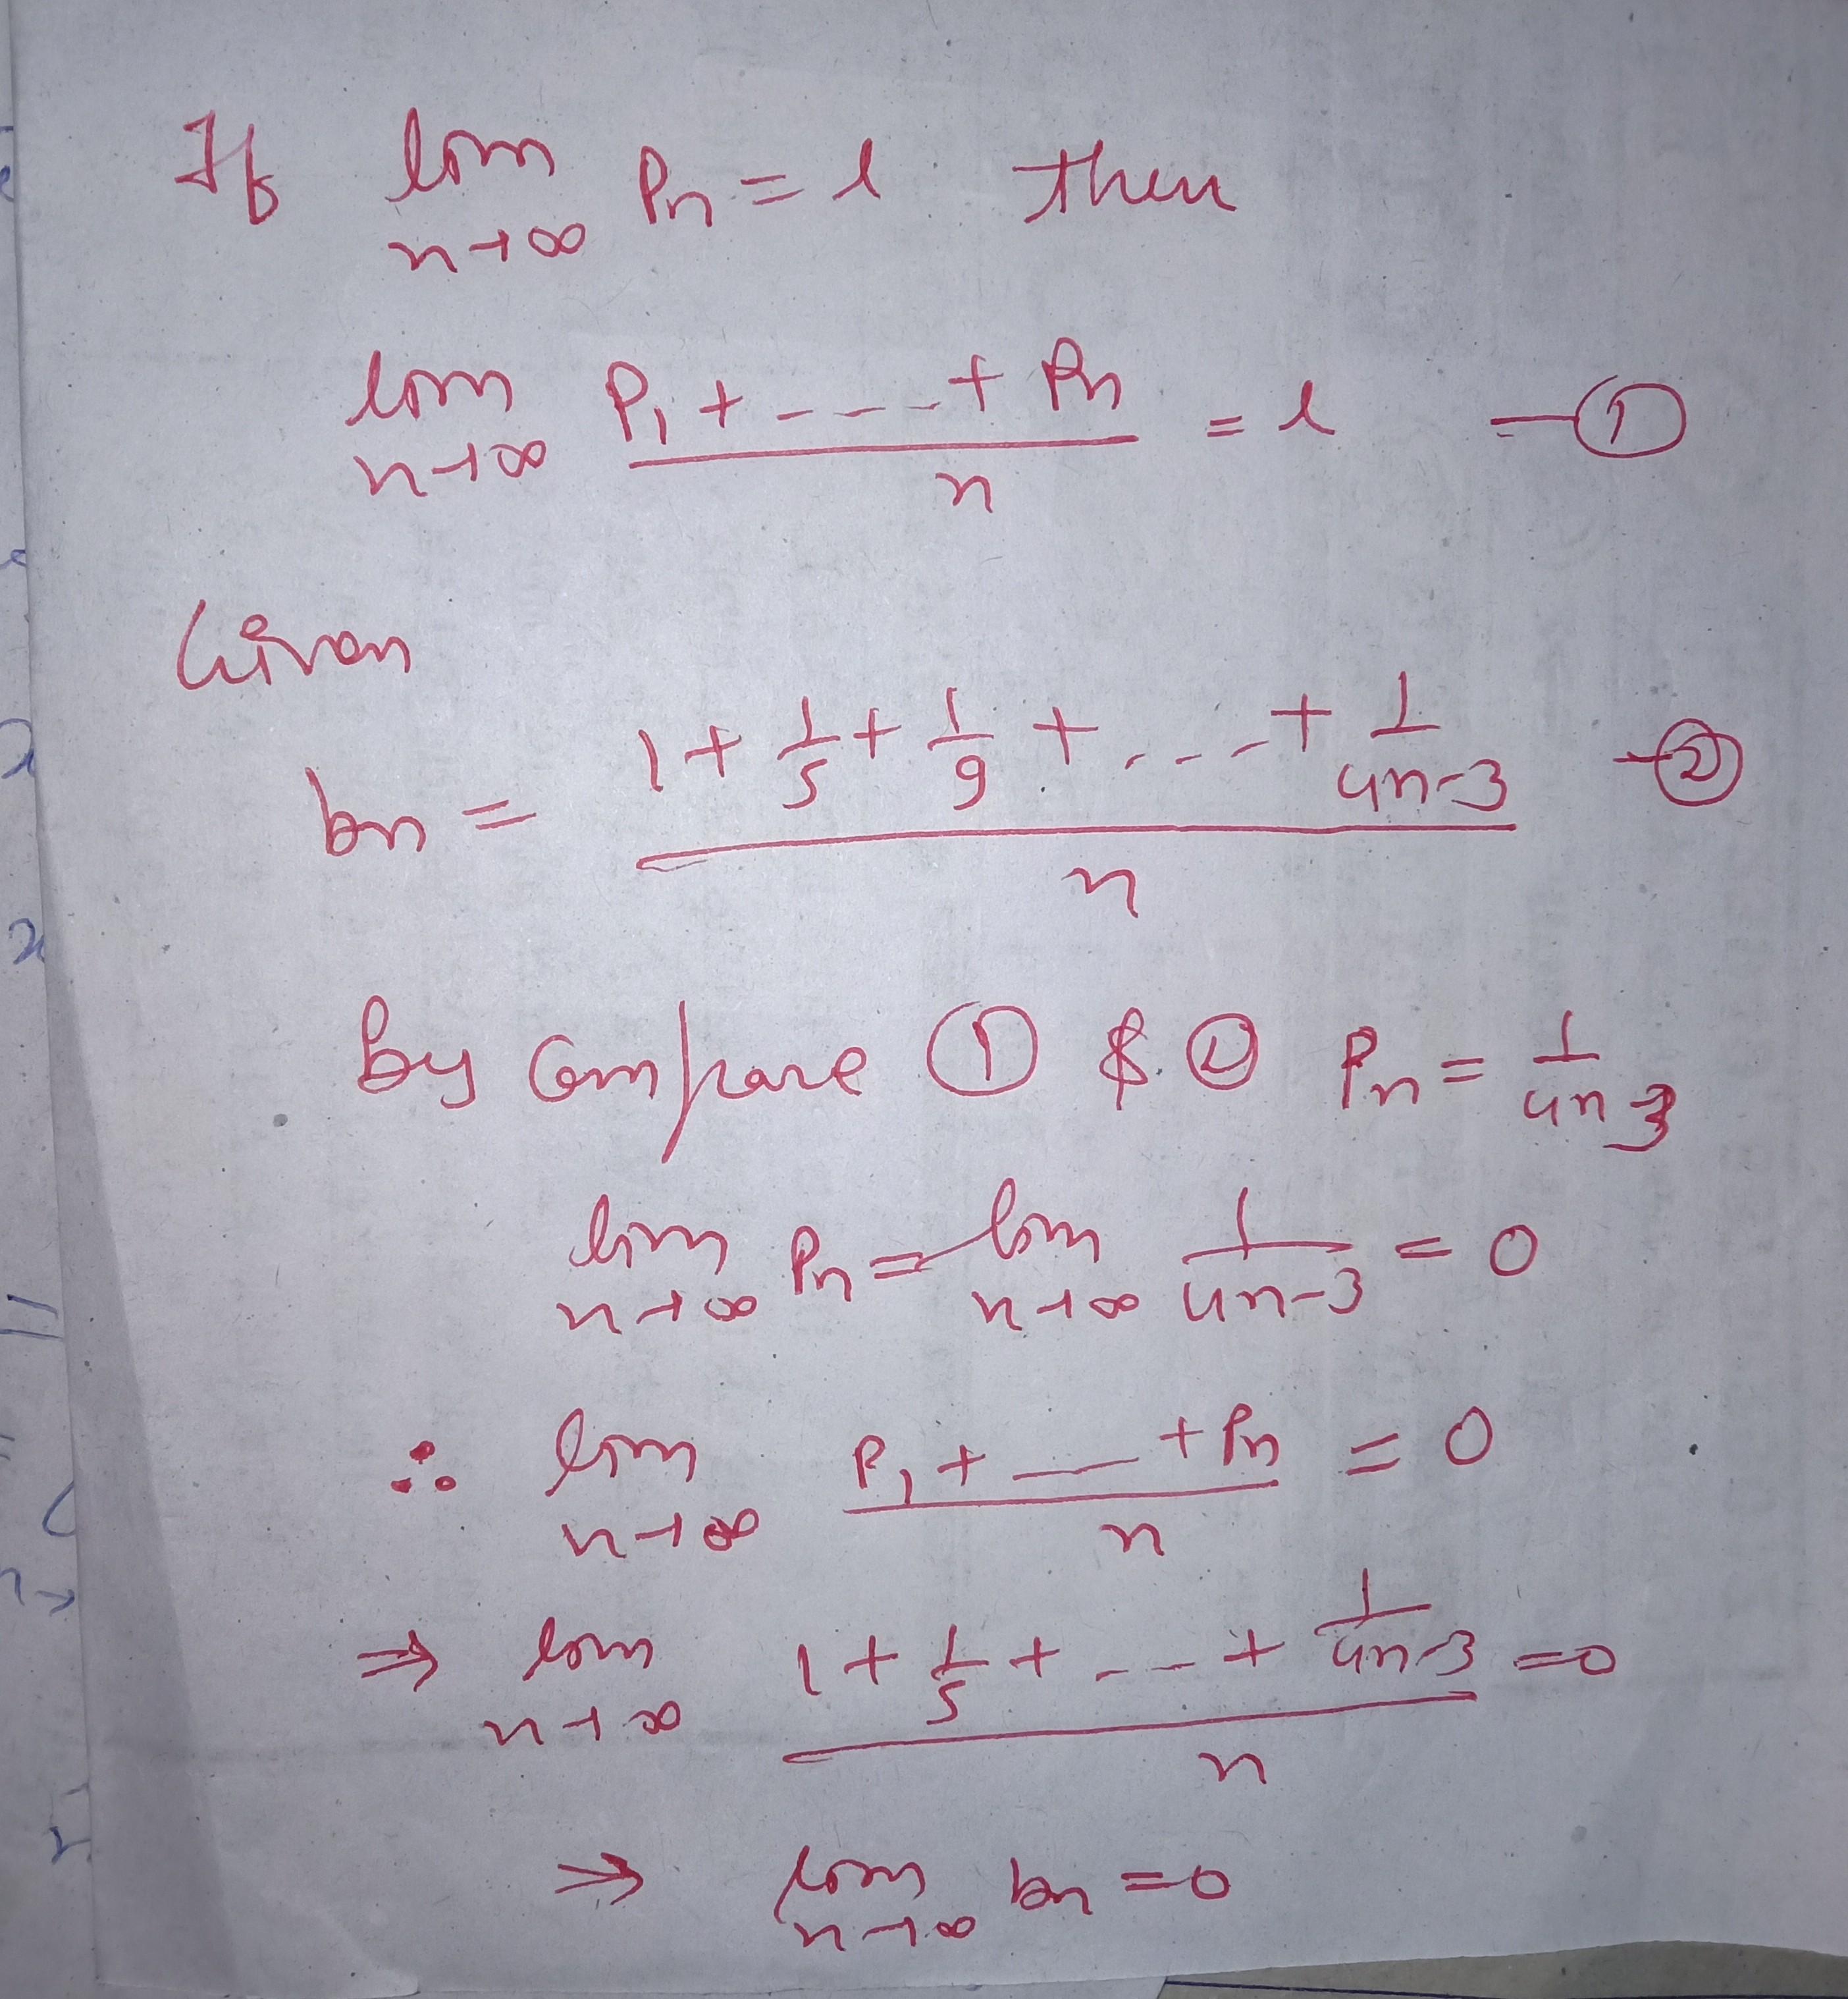 If lim n→∞ Pn = l then
lim n→∞ (P₁ + ---- + Pn)/n = l — ①
Given
bn = (1 + 1/5 + 1/9 + .---- + 1/(4n-3))/n — ②
By Compare ① & ② Pn = 1/(4n-3)
lim n→∞ Pn = lim n→∞ 1/(4n-3) = 0
∴ lim n→∞ (P₁ + — + Pn)/n = 0
⇒ lim n→∞ (1 + 1/5 + --- + 1/(4n-3))/n = 0
⇒ lim n→∞ bn = 0